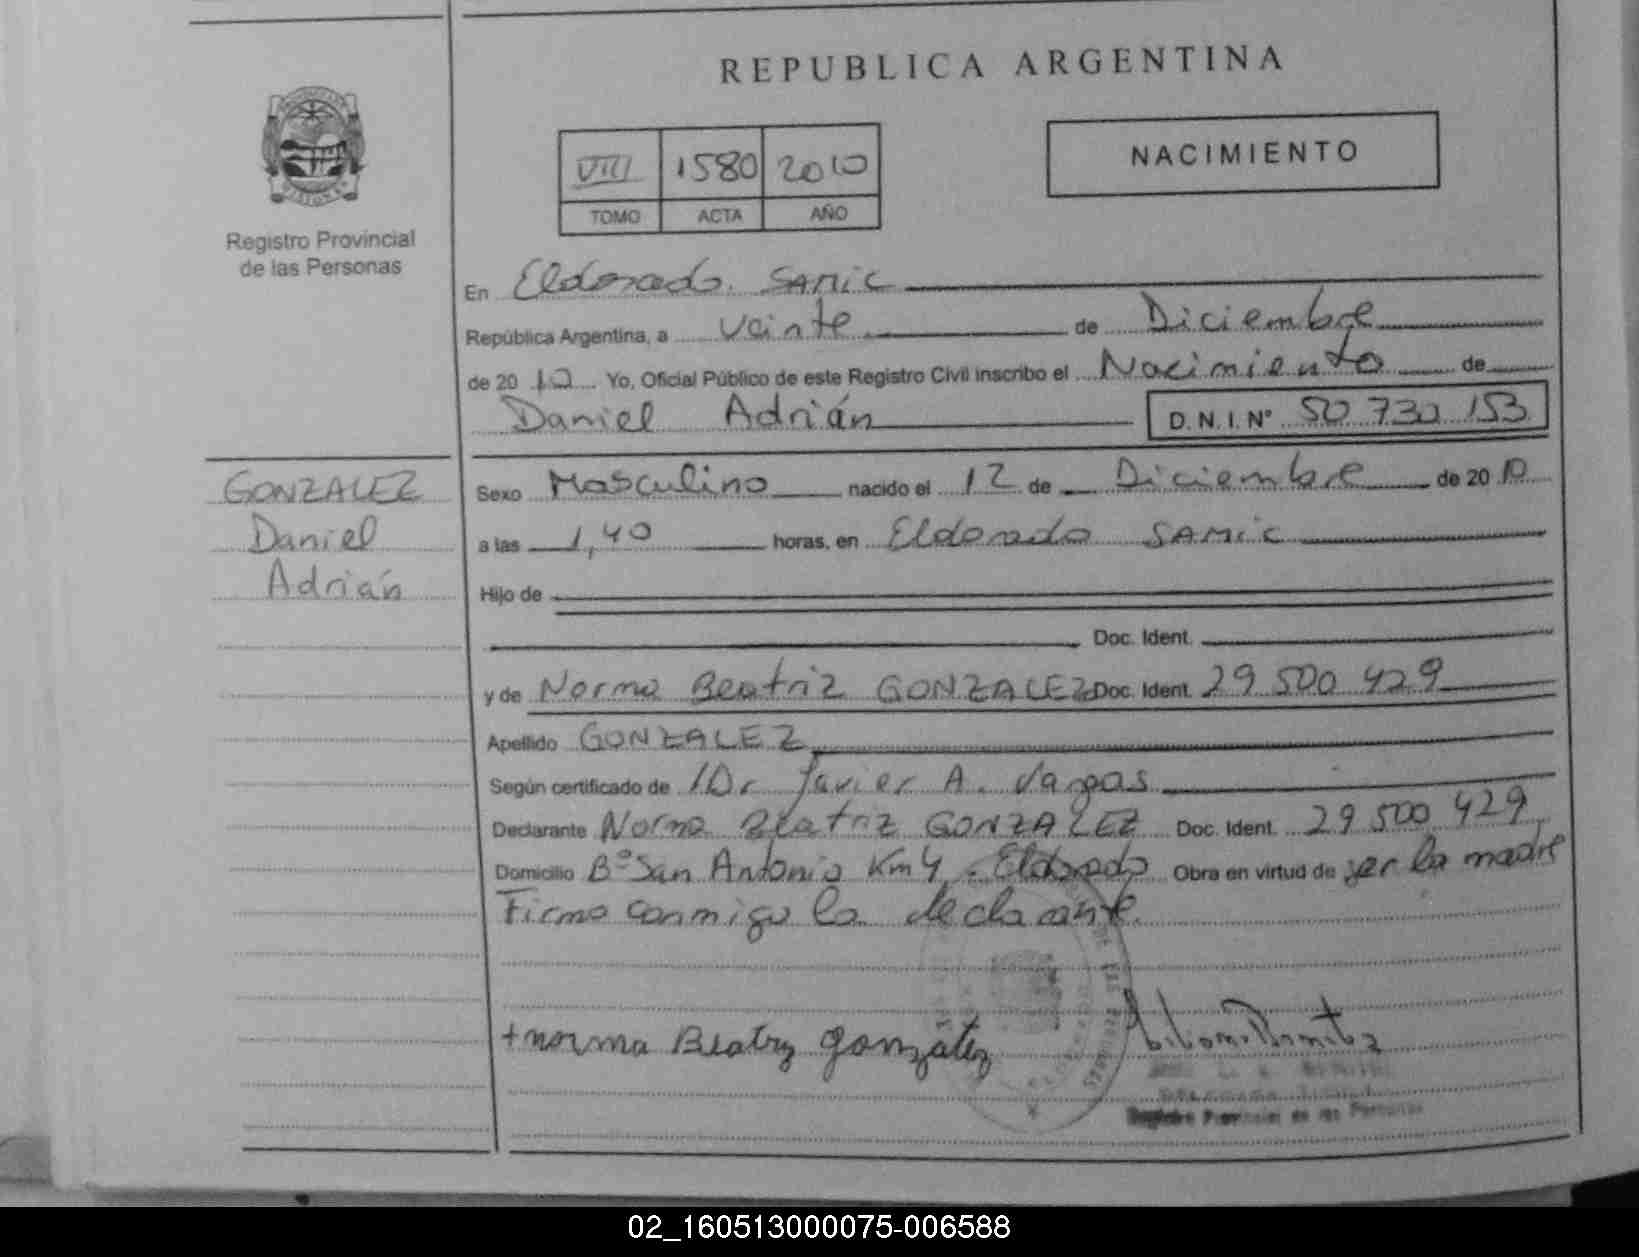 REPUBLICA ARGENTINA
NACIMIENTO
VIII 1580 2010
TOMO ACTA AÑO
Registro Provincial
de las Personas
En Eldorado. SAMIC
República Argentina, a veinte de Diciembre
de 20 10 Yo, Oficial Público de este Registro Civil inscribo el Nacimiento de
Daniel Adrián D.N.I.Nº 50 730 153
GONZALEZ
Daniel
Adrián
Sexo Masculino nacido el 12 de Diciembre de 20 10
a las 1,40 horas, en Eldorado SAMIC
Hijo de
Doc. Ident.
y de Norma Beatriz GONZALEZ Doc. Ident. 29 500 429
Apellido GONZALEZ
Según certificado de Dr Javier A. Vargas
Declarante Norma Beatriz GONZALEZ Doc. Ident. 29 500 429
Domicilio Bº San Antonio Km 4 - Eldorado Obra en virtud de ser la madre
Firma conmigo la declarante.
+norma Beatriz gonzalez
Registro Provincial de las Personas
02_160513000075-006588